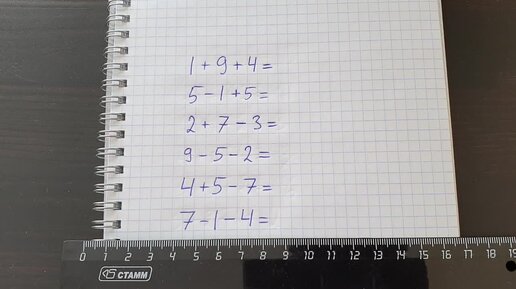 1 + 9 + 4 =
5 - 1 + 5 =
2 + 7 - 3 =
9 - 5 - 2 =
4 + 5 - 7 =
7 - 1 - 4 =
0 1 2 3 4 5 6 7 8 9 10 11 12 13 14 15 16 17 18 19
СТАММ